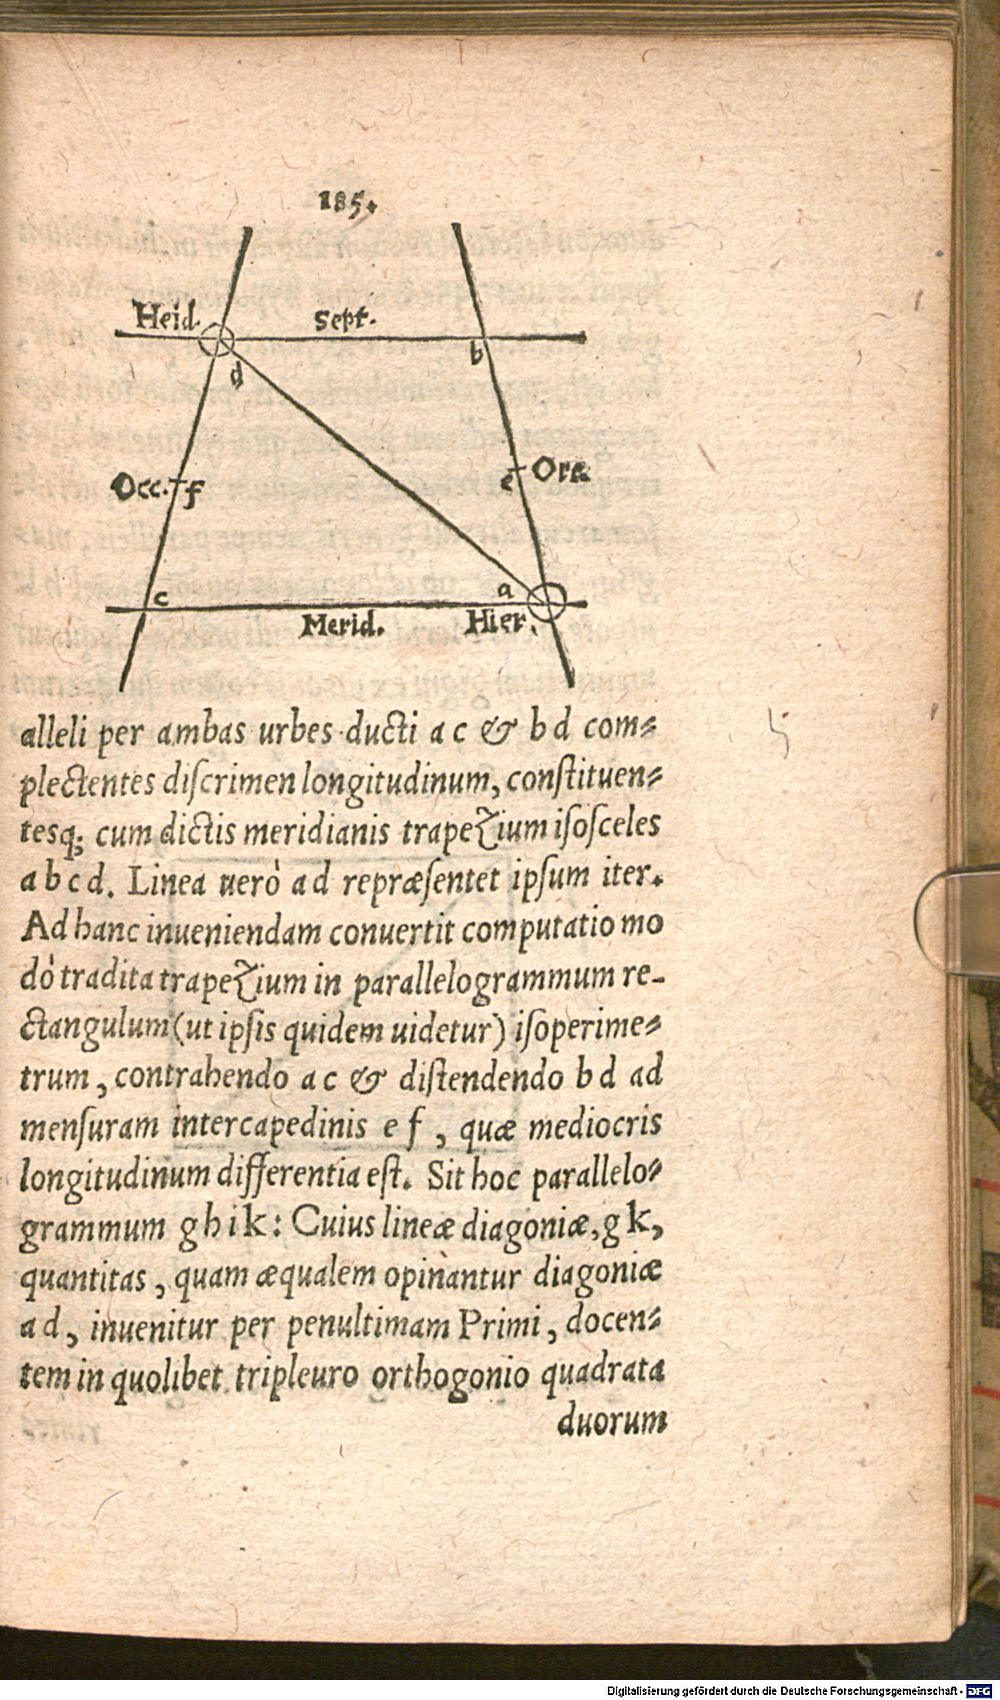 185.
Heid. Sept.
d b
Occ. f e Ori.
c a
Merid. Hier.
alleli per ambas urbes ducti a c & b d com⸗
plectentes diſcrimen longitudinum, conſtituen⸗
tesq; cum dictis meridianis trapezium iſoſceles
a b c d. Linea uerò a d repræſentet ipſum iter.
Ad hanc inueniendam conuertit computatio mo
dò tradita trapezium in parallelogrammum re-
ctangulum (ut ipſis quidem uidetur) iſoperime⸗
trum, contrahendo a c & diſtendendo b d ad
menſuram intercapedinis e f, quæ mediocris
longitudinum differentia eſt. Sit hoc parallelo⸗
grammum g h i k: Cuius lineæ diagoniæ, g k,
quantitas, quam æqualem opinantur diagoniæ
a d, inuenitur per penultimam Primi, docen⸗
tem in quolibet tripleuro orthogonio quadrata
duorum
Digitalisierung gefördert durch die Deutsche Forschungsgemeinschaft - DFG